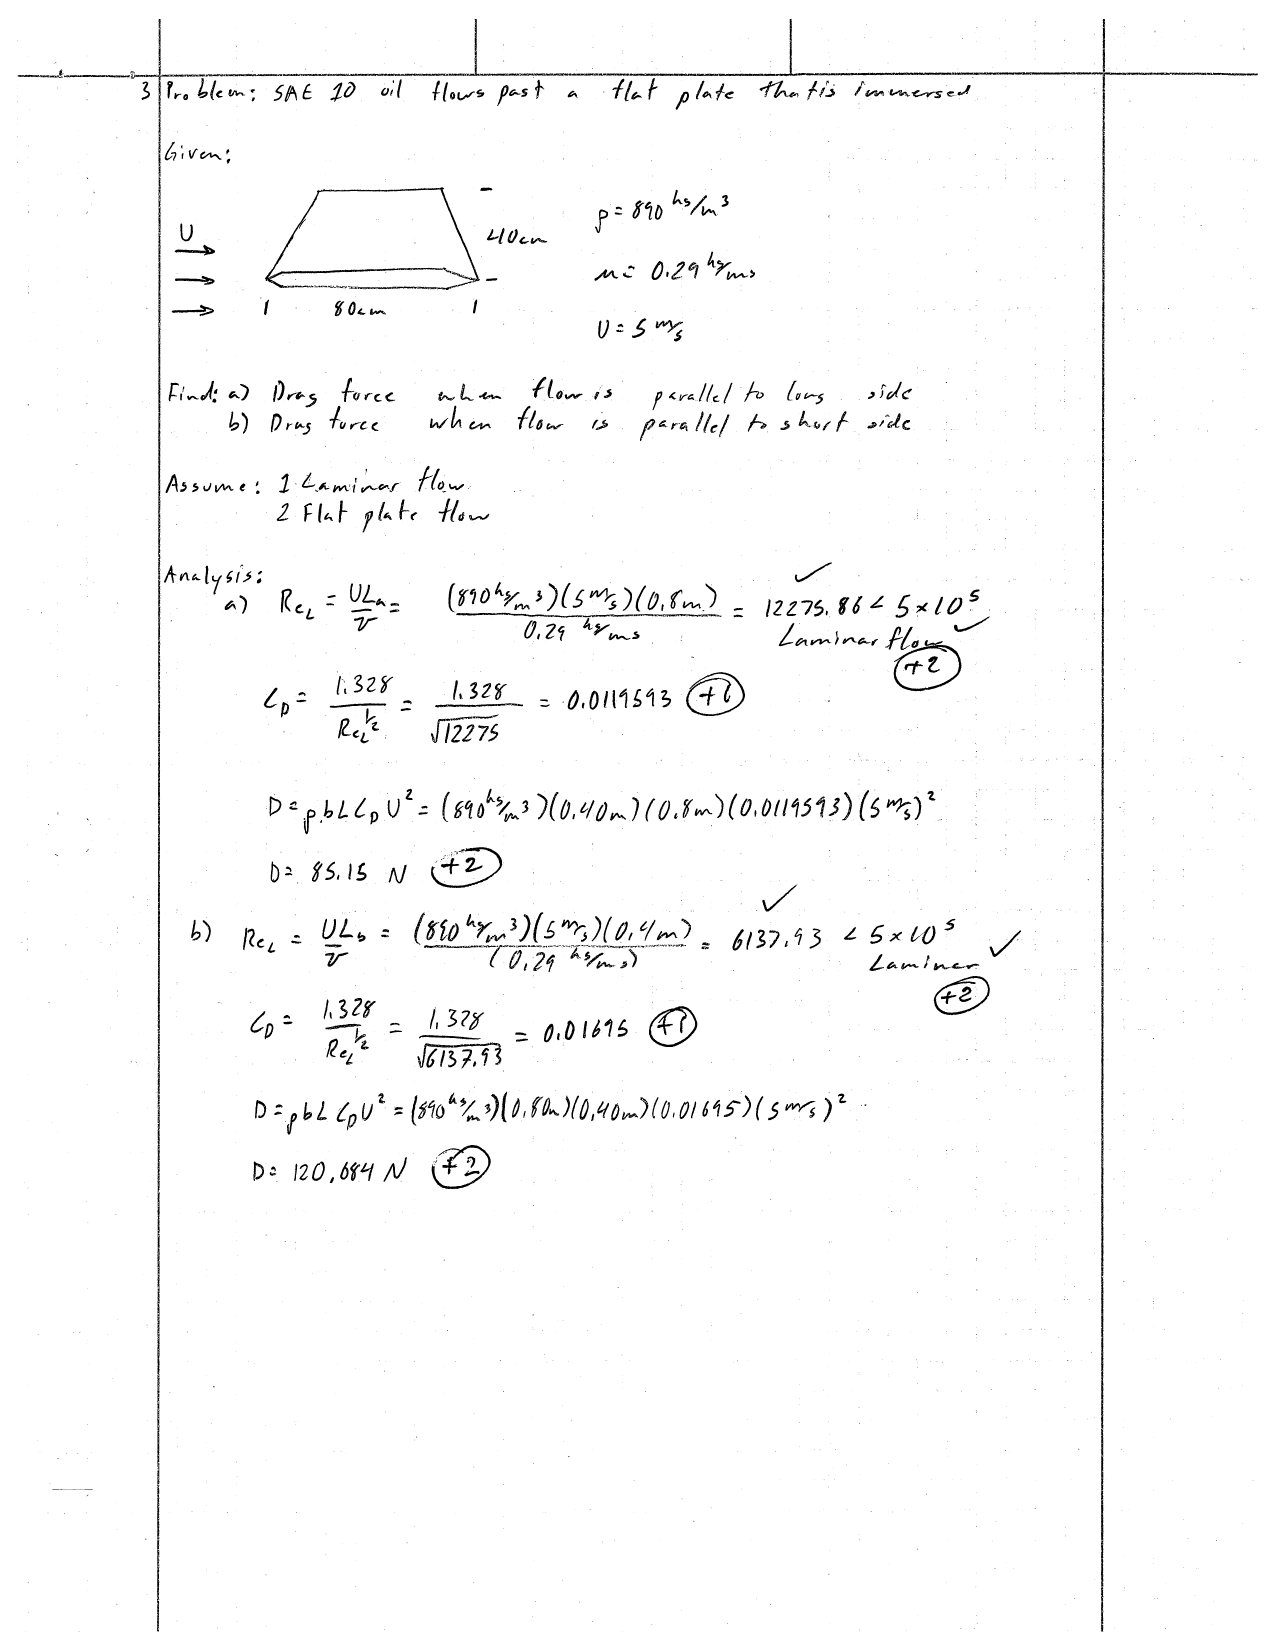 3 Problem: SAE 10 oil flows past a flat plate that is immersed
Given:
U
40cm
80cm
ρ = 890 kg/m³
μ = 0.29 kg/ms
U = 5 m/s
Find: a) Drag force when flow is parallel to long side
b) Drag force when flow is parallel to short side
Assume: 1 Laminar flow
2 Flat plate flow
Analysis:
a) Re_L = UL_a/ν = (890 kg/m³)(5 m/s)(0.8m)/0.29 kg/ms = 12275.86 < 5×10⁵ ✓
Laminar flow ✓
+2
C_D = 1.328/Re_L^1/2 = 1.328/√12275 = 0.0119593 +1
D = ρbLC_DU² = (890 kg/m³)(0.40m)(0.8m)(0.0119593)(5 m/s)²
D = 85.15 N +2
b) Re_L = UL_b/ν = (890 kg/m³)(5 m/s)(0.4m)/(0.29 kg/ms) = 6137.93 < 5×10⁵ ✓
Laminar ✓
+2
C_D = 1.328/Re_L^1/2 = 1.328/√6137.93 = 0.01695 +1
D = ρbLC_DU² = (890 kg/m³)(0.80m)(0.40m)(0.01695)(5 m/s)²
D = 120.684 N +2